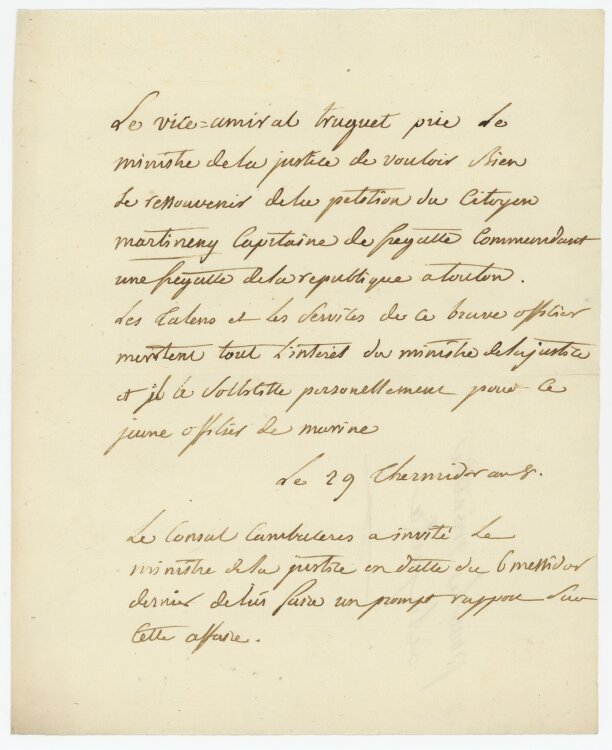 Le vice=amiral truguet prie Le
ministre de la justice de vouloir Bien
se ressouvenir de la petition du Citoyen
martineng Capitaine de fregatte Commandant
une fregatte de la republique a toulon.
Les talens et les services de ce brave officier
meritent tout l'interet du ministre de la justice
et il le sollicitte personellement pour ce
jeune officier de marine
Le 29 Thermidor an 8.
Le Consul Cambaceres a invité Le
ministre de la justice en datte du 6 messidor
dernier de lui faire un prompt rapport sur
Cette affaire.